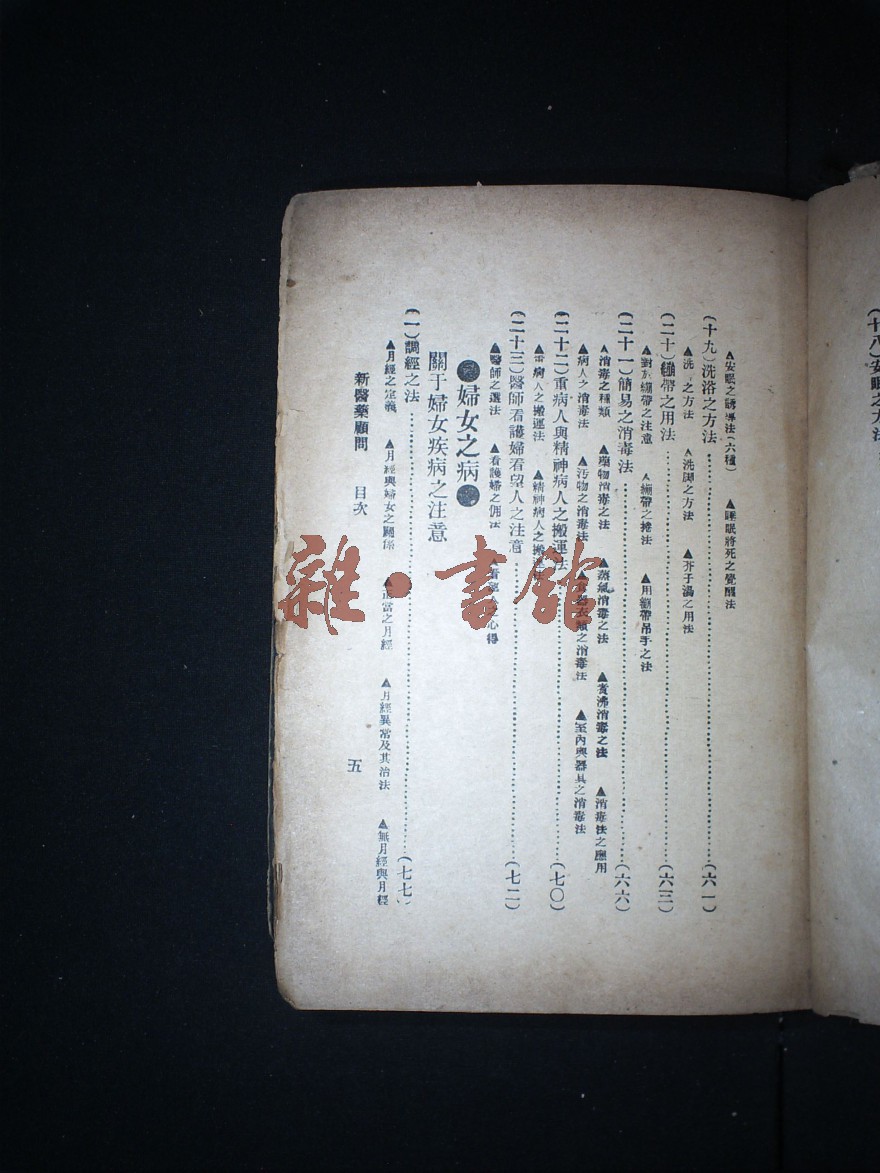 (十八)安眠之方法
▲安眠之誘導法(六種) ▲睡眠將死之覺醒法
(十九)洗浴之方法(六一)
▲洗 之方法 ▲洗脚之方法 ▲芥子湯之用法
(二十)繃帶之用法(六三)
▲對於繃帶之注意 ▲繃帶之捲法 ▲用繃帶吊手之法
(二十一)簡易之消毒法(六六)
▲消毒之種類 ▲藥物消毒之法 ▲蒸氣消毒之法 ▲煑沸消毒之法 ▲消毒法之應用
▲病人之消毒法 ▲汚物之消毒法 ▲食器衣類之消毒法 ▲室內與器具之消毒法
(二十二)重病人與精神病人之搬運法(七〇)
▲重病人之搬運法 ▲精神病人之搬運法
(二十三)醫師看護婦看望人之注意(七二)
▲醫師之選法 ▲看護婦之佣法 ▲看望 之心得
婦女之病
關于婦女疾病之注意
(一)調經之法(七七)
▲月經之定義 ▲月經與婦女之關係 ▲正當之月經 ▲月經異常及其治法 ▲無月經與月經
新醫藥顧問 目次 五
雜·書館